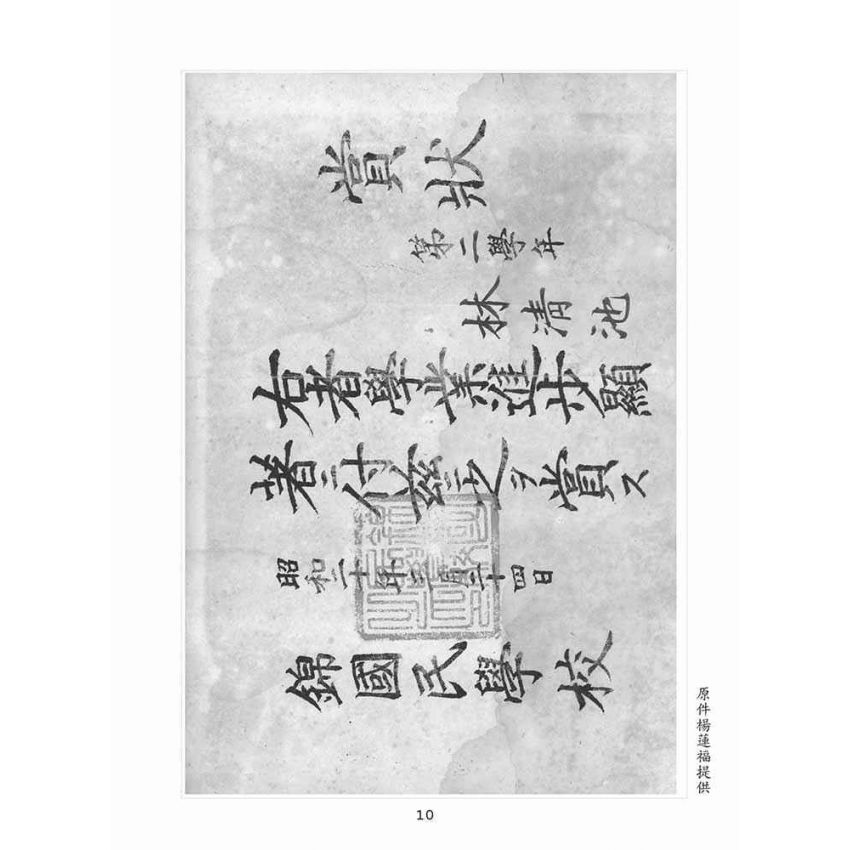 賞狀
第二學年
林清池
右者學業進步顯
著ニ付茲ニ之ヲ賞ス
昭和二十年三月二十四日
錦國民學校
原件楊蓮福提供
10